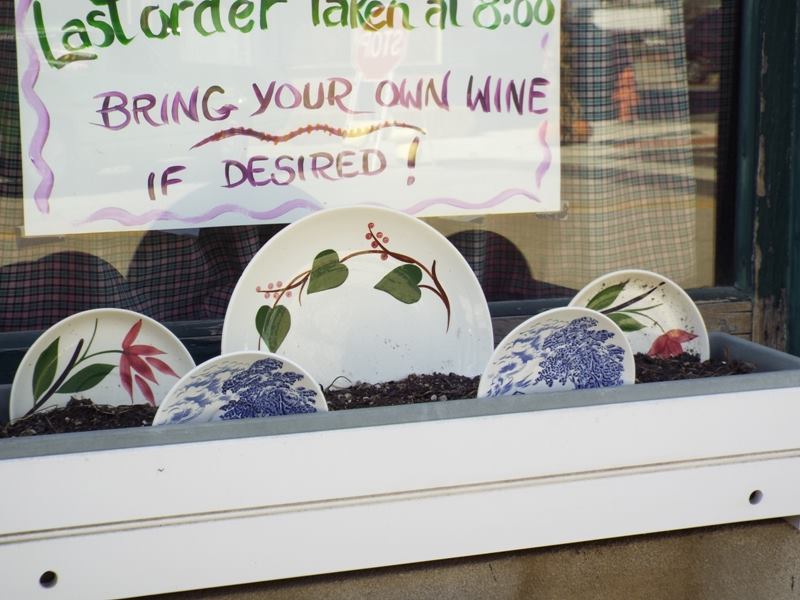 Last order Taken at 8:00
BRING YOUR OWN WINE
IF DESIRED!
STOP